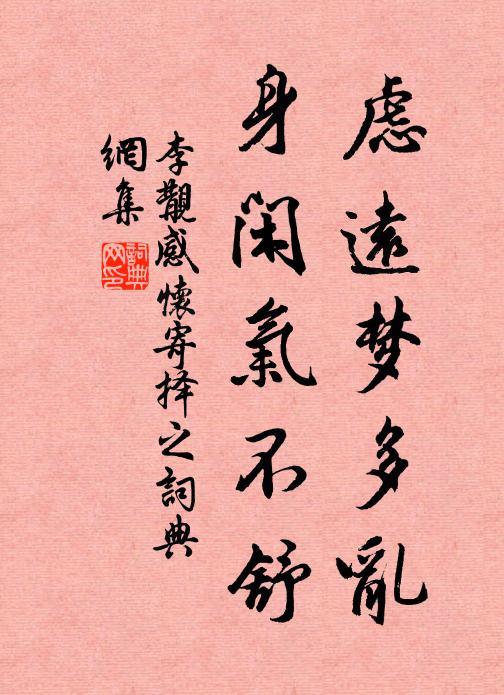 慮遠梦多亂
身閑氣不舒
李覯感懷寄择之詞典
網集
詞典
网印